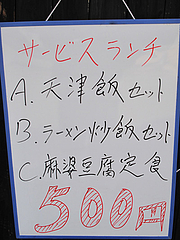 サービスランチ
A.天津飯セット
B.ラーメン炒飯セット
C.麻婆豆腐定食
500円